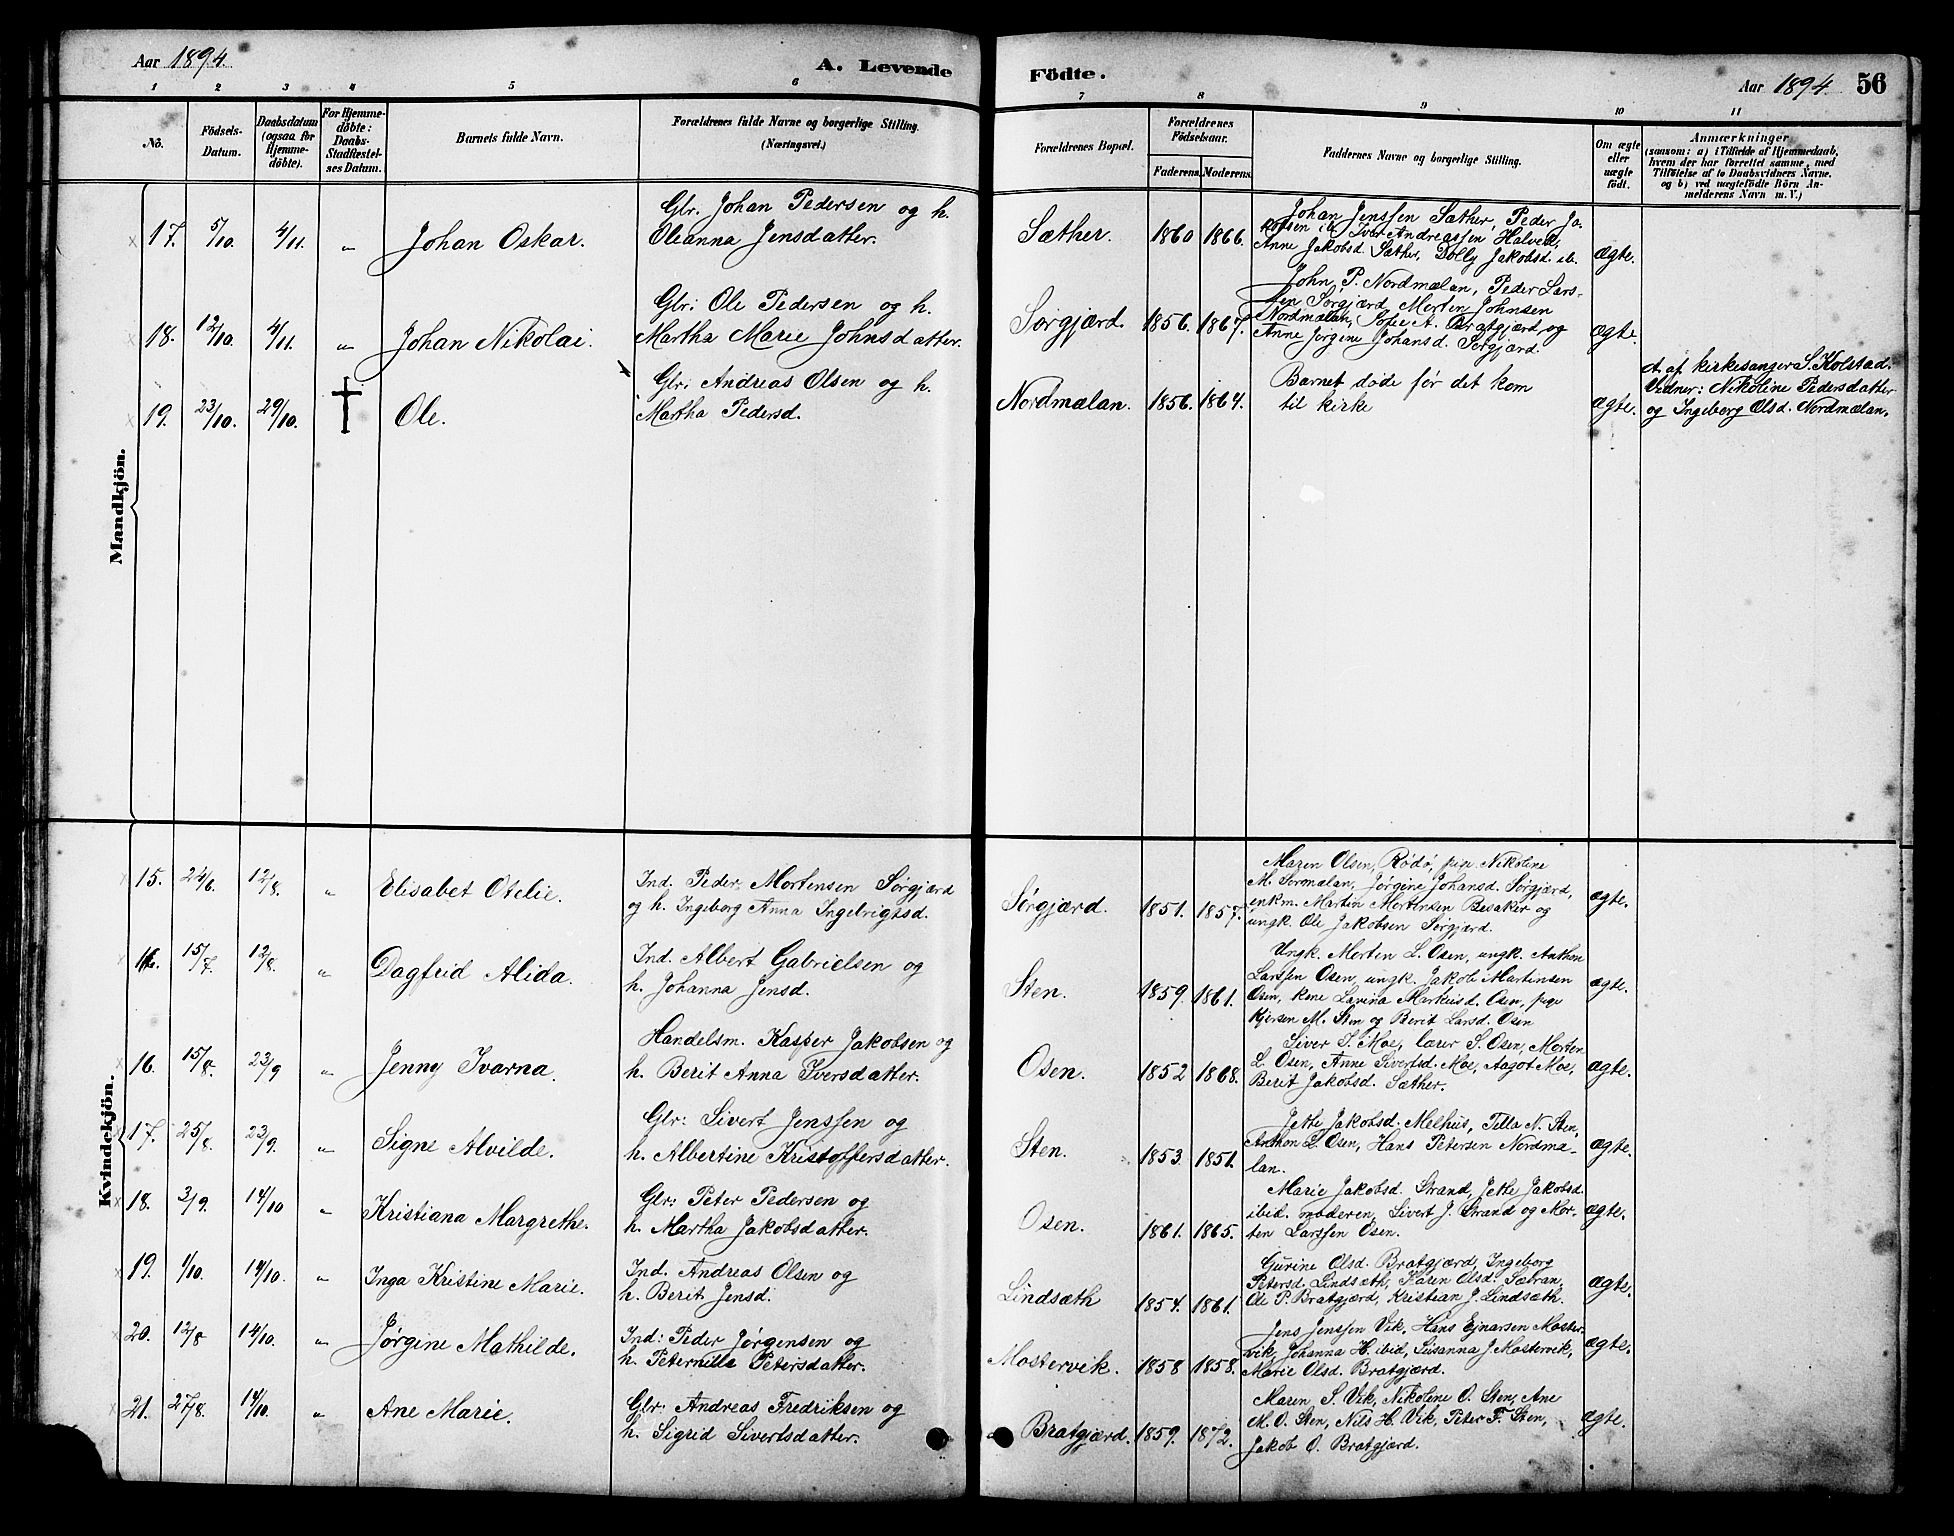 Aar 1894. A. Levende
1 2 3 4 5 6
No. Födsels-Datum. Daabsdatum (ogsaa för Hjemmedöbte). For Hjemmedöbte: Daabs-Stadfæstelses Datum. Barnets fulde Navn. Forældrenes fulde Navne og borgerlige Stilling. (Næringsvei.)
Mandkjön.
17. 5/10. 4/11. „ Johan Oskar. Glr. Johan Pedersen og h.
Oleanna Jensdatter.
18. 12/10. 4/11. „ Johan Nikolai. Glr: Ole Pedersen og h.
Martha Marie Johnsdatter.
19. 23/10. 29/10. † Ole. Glr: Andreas Olsen og h.
Martha Pedersd.
Kvindekjön.
15. 24/6. 12/8. „ Elisabet Otelie. Ind. Peder Mortensen Sørgjærd
og h. Ingeborg Anna Ingebrigtsd.
16. 15/7. 12/8. „ Dagfrid Alida. Ind. Albert Gabrielsen og
h. Johanna Jensd.
16. 15/8. 23/9 „ Jenny Ivarna. Handelsm. Kasper Jakobsen og
h. Berit Anna Iversdatter.
17. 25/8. 23/9. „ Signe Alvilde. Glr: Sivert Jenssen og
h. Albertine Kristoffersdatter.
18. 3/9. 14/10 „ Kristiana Margrethe. Glr: Peter Pedersen og
h. Martha Jakobsdatter.
19. 1/10. 14/10. „ Inga Kristine Marie. Ind. Andreas Olsen og
h. Berit Jensd.
20. 12/8 14/10. „ Jørgine Mathilde. Ind: Peder Jørgensen og
h. Peternilla Petersdatter.
21. 27/8. 14/10. „ Ane Marie. Glr: Andreas Fredriksen og
h. Sigrid Sivertsdatter.
Födte. Aar 1894. 56
7 8 9 10 11
Forældrenes Bopæl. Forældrenes Födselsaar. Faderens. Moderens. Faddernes Navne og borgerlige Stilling. Om ægte eller uægte födt. Anmærkninger
(saasom: a) i Tilfælde af Hjemmedaab,
hvem der har forrettet samme, med
Tilföielse af to Daabsvidners Navne.
og b) ved uægtefödte Börn Anmelderens Navn m. V.)
Sæther. 1860 1866. Johan Jenssen Sæther, Peder Ja-
kobsen ib. Iver Andreassen Halved,
Anne Jakobsd. Sæther, Dolly Jakobsd. ib. ægte.
Sørgjærd. 1856. 1867. John P. Nordmælan, Peder Lars-
sen Sørgjærd, Morten Johnsen
Nordmælan, Sofie A. Bratgjærd, og
Anne Jørgine Johansd. Sørgjærd. ægte.
Nordmælan. 1856. 1864. Barnet døde før det kom
til kirke ægte. d. af kirkesanger S. Kolstad.
Vidner: Nikoline Pedersdatter
og Ingeborg Olsd. Nordmælan.
Sørgjærd. 1851. 1857. Maren Olsen, Rødø, pige Nikoline
M. Sørmælan, Jørgine Johansd. Sørgjærd,
enkm. Martin Mortensen Besaker og
ungk. Ole Jakobsen Sørgjærd. ægte.
Sten. 1859. 1861. Ungk. Morten L. Osen, ungk. Anthon
Larssen Osen, ungk. Jakob Martinsen
Osen, kone Lavina Markusd. Osen, pige
M. Sten og Berit Larsd. Osen ægte.
Osen. 1852 1868. Siver S. Moe, lærer S. Osen, Morten
L. Osen, Anne Sivertsd. Moe, Aagot Moe,
Berit Jakobsd. Sæther. ægte.
Sten. 1853. 1851. Jette Jakobsd. Melhus, Tilla N. Sten,
Anthon L. Osen, Hans Petersen Nordmæ-
lan. ægte.
Osen. 1861. 1865. Marie Jakobsd. Strand, Jette Jakobsd.
ibid. moderen, Sivert J. Strand og Mor-
ten Larssen Osen. ægte.
Lindsæth 1854. 1861. Gurine Olsd. Bratgjærd, Ingeborg
Petersd. Lindsæth, Karen Olsd. Sætran,
Ole P. Bratgjærd, Kristian J. Lindsæth. ægte.
Mostervik. 1858 1858. Jens Jenssen Vik, Hans Ejnarsen Moster-
vik, Johanna H. ibid, Susanna J. Mostervik,
Marie Olsd. Bratgjærd. ægte.
Bratgjærd. 1859. 1872. Maren S. Vik, Nikoline O. Sten, Ane
M. O. Sten, Nils H. Vik, Peter F. Sten,
Jakob O. Bratgjærd. ægte.